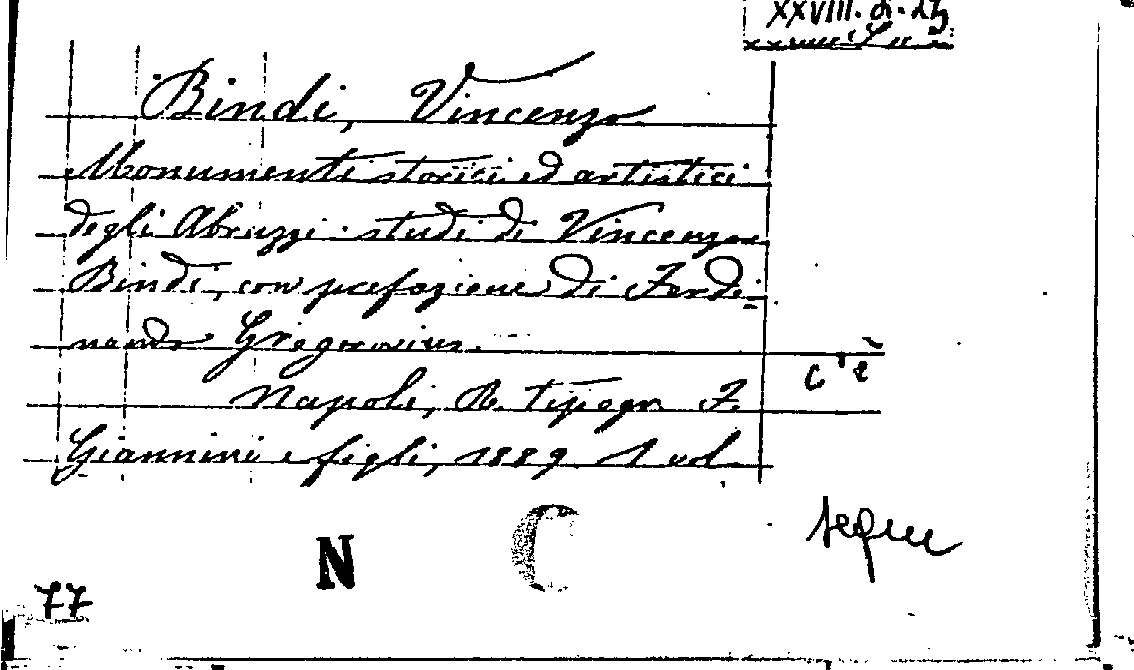 XXVIII. d. 23
Bindi, Vincenzo
Monumenti storici ed artistici
degli Abruzzi. studi di Vincenzo
Bindi, con prefazione di Ferdi=
nando Gregorovius.
c'è
Napoli, R. tipogr. F.
Giannini e figli, 1889. 1 vol.
N C
segue
77